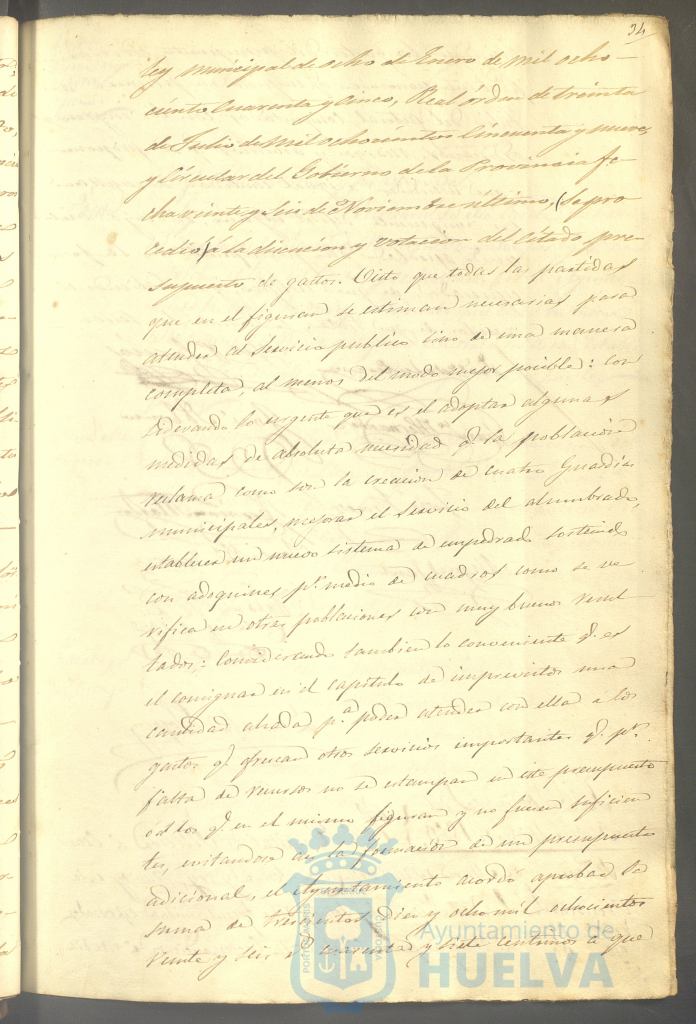 34
ley municipal de ocho de Enero de mil ocho-
ciento cuarenta y cinco, Real órden de treinta
de Julio de mil ochocientos cincuenta y nueve,
y Circular del Gobierno de la Provincia fe-
cha veinte y seis de Noviembre último, (se pro
cedio) á la discucion y votacion del citado pre-
supuesto de gastos. Visto que todas las partidas
que en el figuran se estiman necesarias para
atender al servicio publico sino de una manera
completa, al menos del modo mejor posible: con
siderando lo urgente que es el adoptar algunas
medidas de absoluta necesidad q.e la poblacion
reclama como son la creacion de cuatro Guardias
municipales, mejorar el servicio del alumbrado,
establecer un nuevo sistema de empedrado sostenido
con adoquines p.r medio de cuadros como se ve
rifica en otras poblaciones con muy buenos resul
tados: Considerando tambien lo conveniente q.e es
el consignar en el capitulo de imprevistos una
cantidad alzada p.a poder atender con ella a los
gastos q.e ofrezcan otros servicios importantes q.e p.r
falta de recursos no se estampan en este presupuesto
ó á los q.e en el mismo figuran y no fueren suficien
tes, evitandose asi la formacion de un presupuesto
adicional, el Ayuntamiento acordó aprobar la
suma de trescientos diez y ocho mil ochocientos
veinte y seis r.s cuarenta y siete centimos a que
Ayuntamiento de
HUELVA